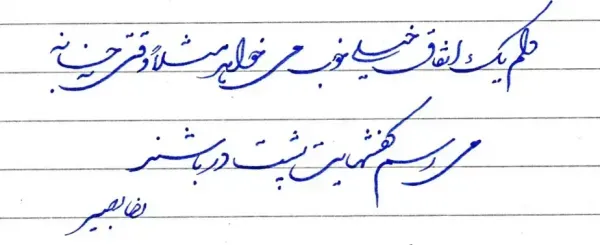 دلم یک اتفاق خیلی خوب می خواهد مثلاً وقتی به خانه
می رسم کفشهایت پشت در باشند
رضا بصیر